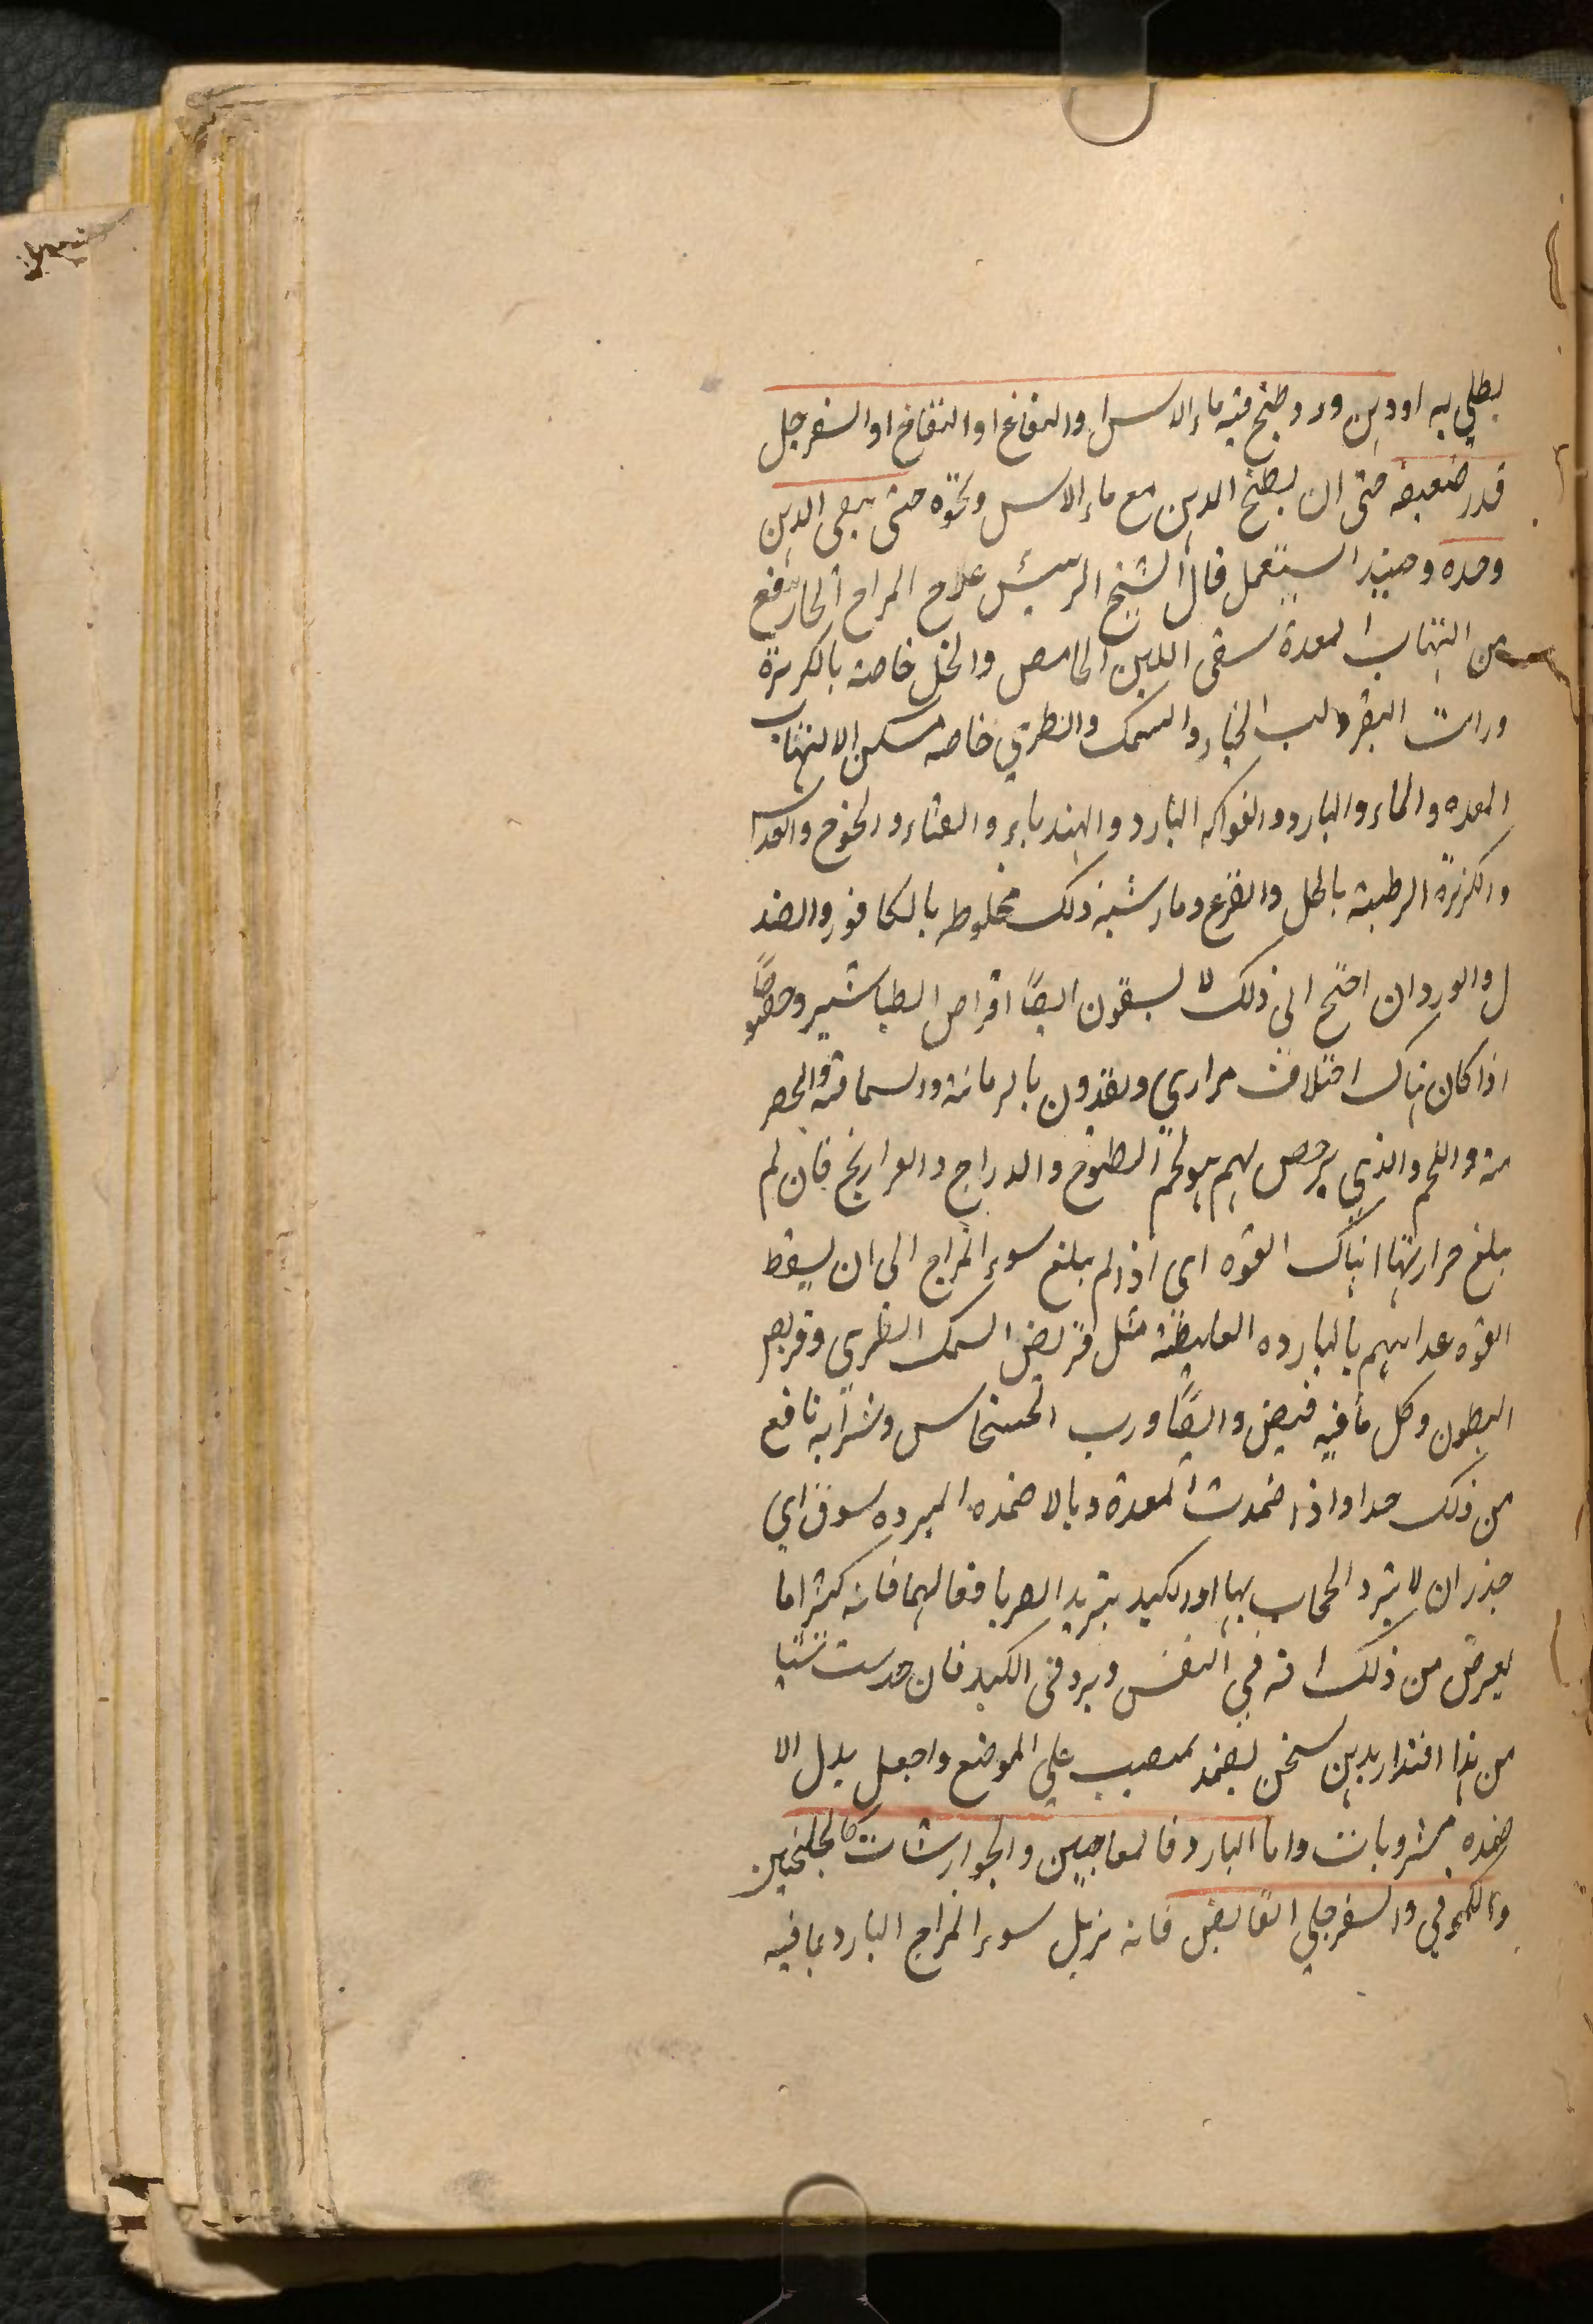 يطلى به او دهن ورد طبخ فيه ماء الاس او النعناع او التفاح او السفرجل
قدر ضعيفه حتى ان يطبخ الدهن مع ماء الاس ونحوه حتى يبقى الدهن
وحده وحينئذ استعمل قال الشيخ الرئيس علاج المزاج الحار ينفع
من التهاب المعدة سقى اللبن الحامض والخل خاصه بالكزبرة
ورائب البقر ولب الخيار والسمك والطري خاصه مسكن الالتهاب
المعده والماء والبارد والفواكه البارد والهندباء والقثاء والخوخ والعدس
والكزبرة الرطبة بالخل والقرع وما يشبه ذلك مخلوطه بالكافور والصند
ل والورد ان احتج الى ذلك لا يسقون ايضًا اقراص الطباشير وخصوصًا
اذا كان هناك اختلاف مراري ويغذون بالرمانه والسماقه والحصر
مه واللحم والذي يرخص لهم هو لحم الطيهوج والدراج والفراريج فان لم
يبلغ حرارتها انهاك القوه اى اذا لم يبلغ سوء المزاج الى ان يسقط
القوه غذائهم بالبارده الغليظة مثل قريض السمك الطري وقريص
البطون وكل ما فيه قبض وايضًا ورب الخشخاش وشرابه نافع
من ذلك جدا واذا ضمدت المعدة وبالاضمده المبرده سوف اي
حذر ان لا يبرد الحجاب بها او الكبد بتبريد افعالهما فانه كثيرا ما
يعرض من ذلك افه في النفس وبرد فى الكبد فان حدست شيئا
من هذا افتدارك بدهن سخن يضمد يصب علي الموضع واجعل بدل الا
ضمده مشروبات واما البارد فالمعاجين والجوارشات كالجلنجبين
والكموني والسفرجلي القابض فانه يزيل سوء المزاج البارد بما فيه